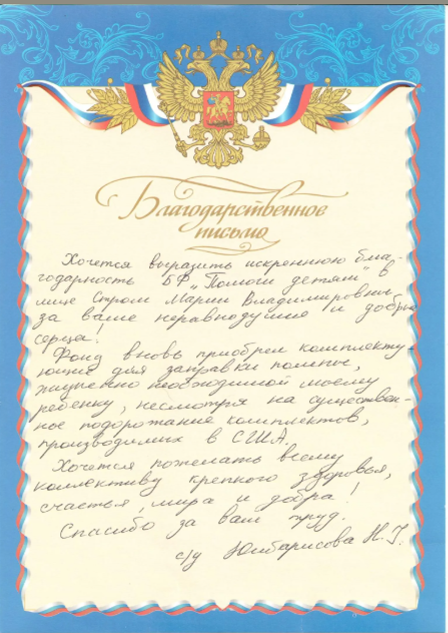 Благодарственное
письмо
Хочется выразить искреннюю бла-
годарность БФ "Помоги детям" в
лице Стром Марии Владимировны
за ваше неравнодушие и добрые
сердца!
Фонд вновь приобрел комплекту-
ющие для заправки помпы,
жизненно необходимой моему
ребенку, несмотря на существен-
ное подорожание комплектов,
производимых в США.
Хочется пожелать всему
коллективу крепкого здоровья,
счастья, мира и добра!
Спасибо за ваш труд.
с/у Юлбарисова Н.Г.